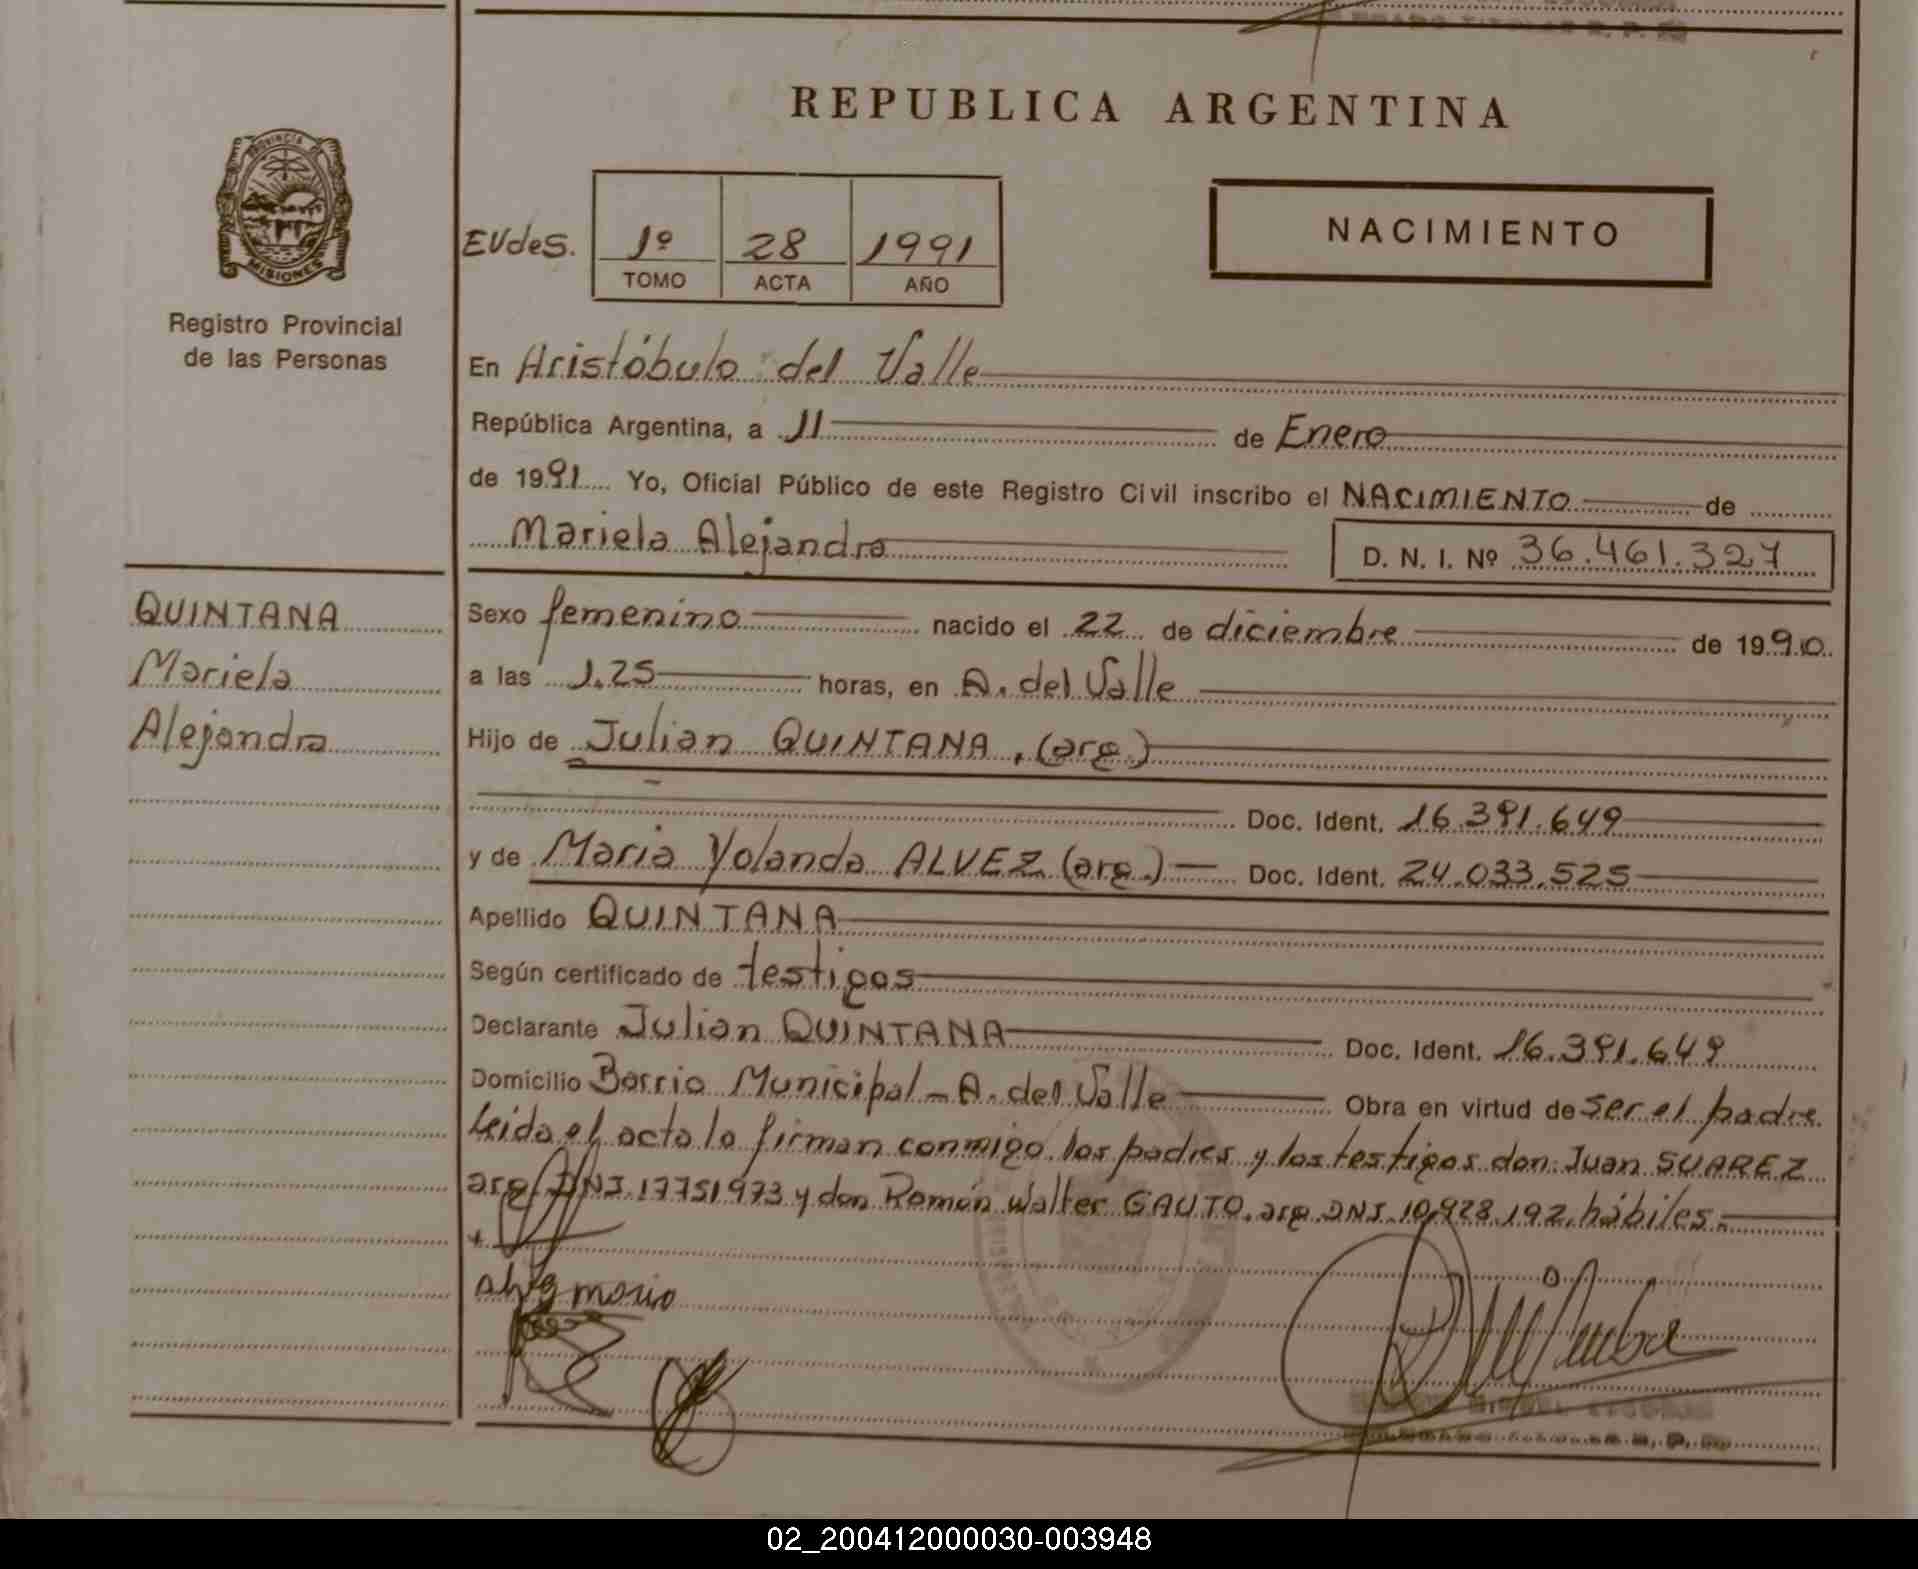 REPUBLICA ARGENTINA
PROVINCIA DE
MISIONES
Registro Provincial
de las Personas
EVdes. 1º 28 1991
TOMO ACTA AÑO
NACIMIENTO
En Aristóbulo del Valle
República Argentina, a 11 de Enero
de 1991 Yo, Oficial Público de este Registro Civil inscribo el NACIMIENTO de
Mariela Alejandra D. N. I. Nº 36.461.327
QUINTANA
Mariela
Alejandra
Sexo femenino nacido el 22 de diciembre de 1990
a las 1.25 horas, en A. del Valle
Hijo de Julian QUINTANA, (arg.)
Doc. Ident. 16.391.649
y de Maria Yolanda ALVEZ (arg.) Doc. Ident. 24.033.525
Apellido QUINTANA
Según certificado de testigos
Declarante Julian QUINTANA Doc. Ident. 16.391.649
Domicilio Barrio Municipal - A. del Valle Obra en virtud de ser el padre
leída el acta la firman conmigo los padres y los testigos don: Juan SUAREZ
arg. DNI. 17751973 y don Ramón Walter GAUTO. arg. DNI. 10.928.192. hábiles.-
mario
02_200412000030-003948